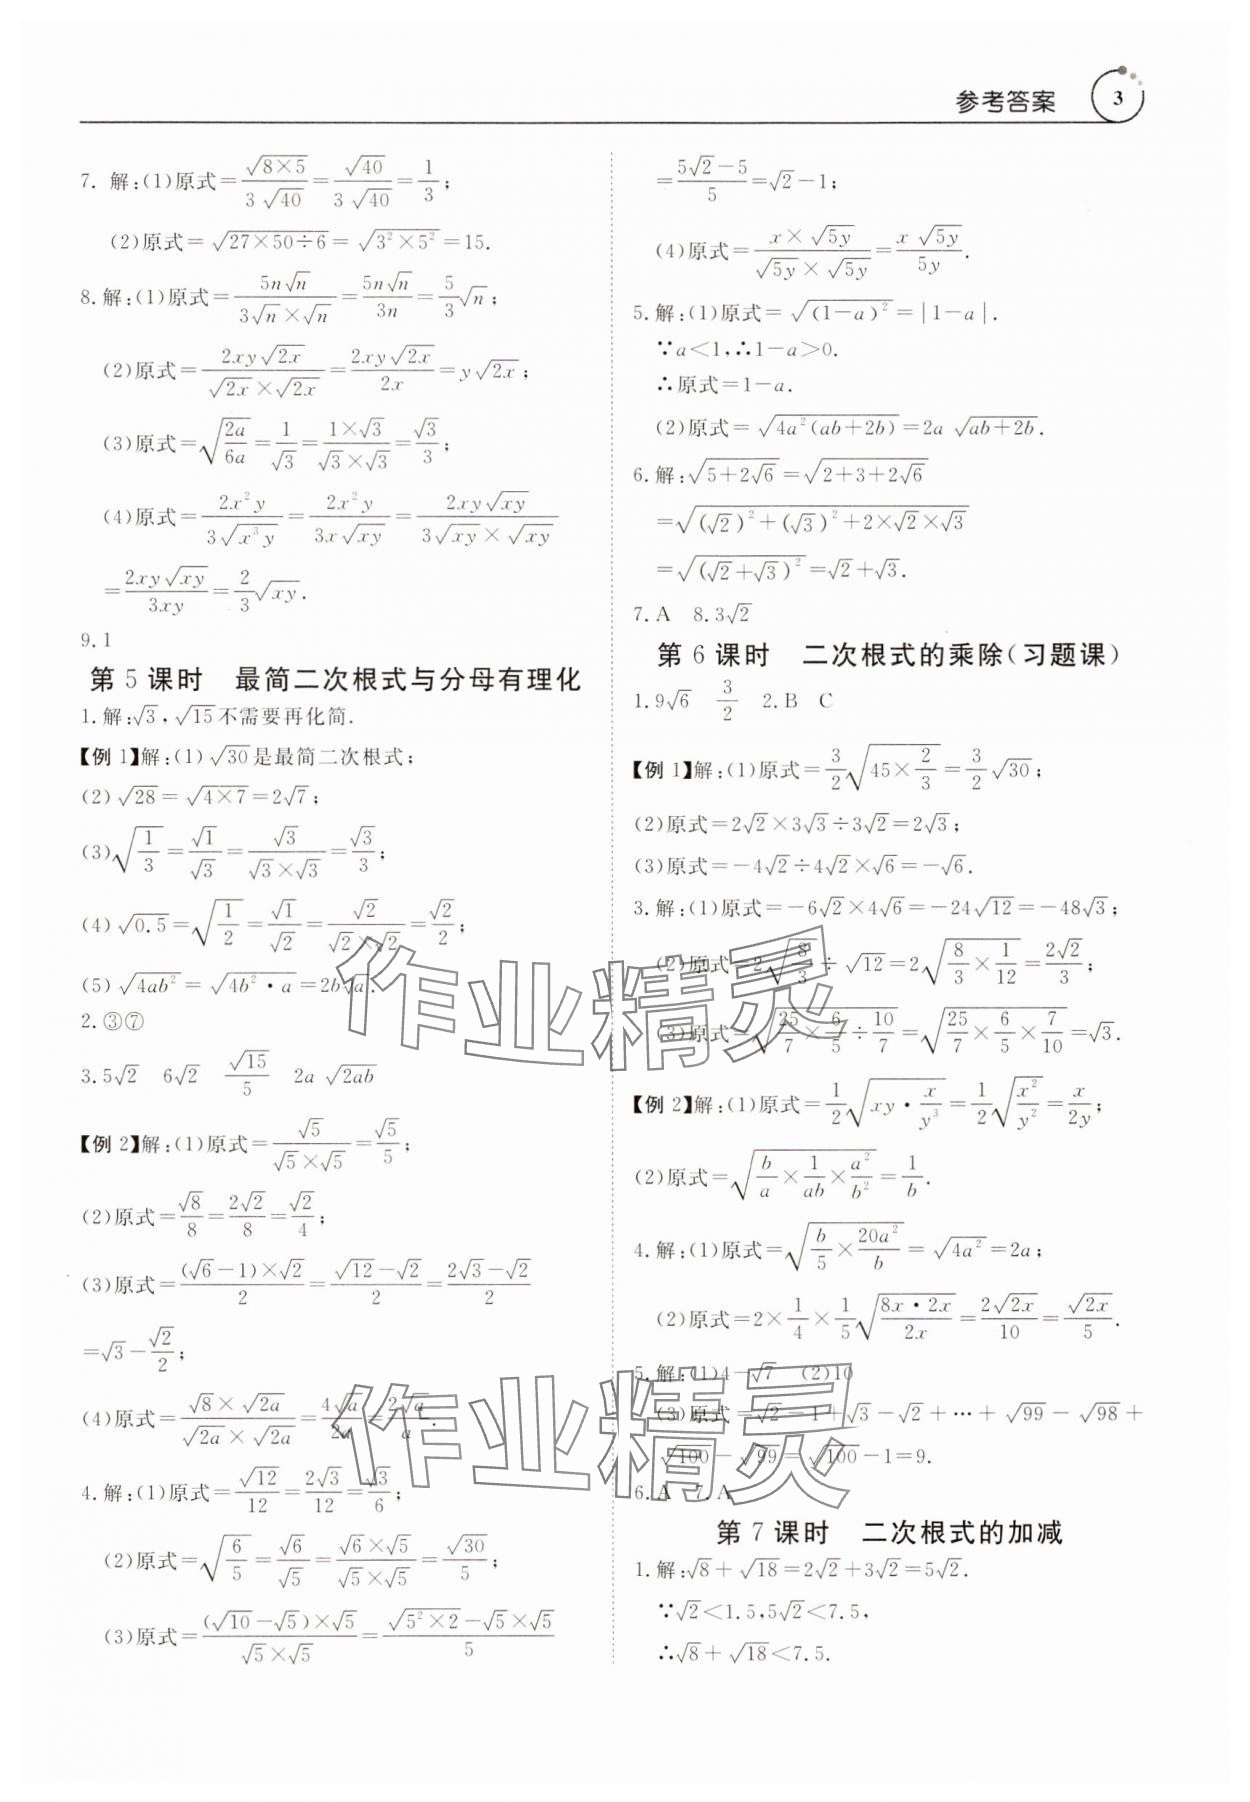 参考答案 3
7. 解:(1)原式=√(8×5)/(3√40)=√40/(3√40)=1/3;
(2)原式=√(27×50÷6)=√(3²×5²)=15.
8.解:(1)原式=5n√n/(3√n×√n)=5n√n/(3n)=5/3√n;
(2)原式=2xy√(2x)/(√(2x)×√(2x))=2xy√(2x)/(2x)=y√(2x);
(3)原式=√(2a/6a)=1/√3=(1×√3)/(√3×√3)=√3/3;
(4)原式=2x²y/(3√(x³y))=2x²y/(3x√(xy))=2xy√(xy)/(3√(xy)×√(xy))
=2xy√(xy)/(3xy)=2/3√(xy).
9.1
第5课时 最简二次根式与分母有理化
1.解:√3,√15不需要再化简.
【例1】解:(1)√30是最简二次根式;
(2)√28=√(4×7)=2√7;
(3)√(1/3)=√1/√3=√3/(√3×√3)=√3/3;
(4)√0.5=√(1/2)=√1/√2=√2/(√2×√2)=√2/2;
(5)√(4ab²)=√(4b²·a)=2b√a.
2.③⑦
3.5√2 6√2 √15/5 2a√(2ab)
【例2】解:(1)原式=√5/(√5×√5)=√5/5;
(2)原式=√8/8=2√2/8=√2/4;
(3)原式=(√6-1)×√2/2=(√12-√2)/2=(2√3-√2)/2
=√3-√2/2;
(4)原式=(√8×√(2a))/(√(2a)×√(2a))=4√a/(2a)=2√a/a.
4.解:(1)原式=√12/12=2√3/12=√3/6;
(2)原式=√(6/5)=√6/√5=(√6×√5)/(√5×√5)=√30/5;
(3)原式=(√10-√5)×√5/(√5×√5)=(√(5²×2)-√5×√5)/5
=(5√2-5)/5=√2-1;
(4)原式=(x×√(5y))/(√(5y)×√(5y))=x√(5y)/(5y).
5.解:(1)原式=√((1-a)²)=|1-a|.
∵a<1,∴1-a>0.
∴原式=1-a.
(2)原式=√(4a²(ab+2b))=2a√(ab+2b).
6.解:√(5+2√6)=√(2+3+2√6)
=√((√2)²+(√3)²+2×√2×√3)
=√((√2+√3)²)=√2+√3.
7.A 8.3√2
第6课时 二次根式的乘除(习题课)
1.9√6 3/2 2.B C
【例1】解:(1)原式=3/2√(45×2/3)=3/2√30;
(2)原式=2√2×3√3÷3√2=2√3;
(3)原式=-4√2÷4√2×√6=-√6.
3.解:(1)原式=-6√2×4√6=-24√12=-48√3;
(2)原式=2√(8/3)÷√12=2√(8/3×1/12)=2√2/3;
(3)原式=√(25/7×6/5÷10/7)=√(25/7×6/5×7/10)=√3.
【例2】解:(1)原式=1/2√(xy·x/y³)=1/2√(x²/y²)=x/2y;
(2)原式=√(b/a×1/ab×a²/b²)=1/b.
4.解:(1)原式=√(b/5×20a²/b)=√(4a²)=2a;
(2)原式=2×1/4×1/5√(8x·2x/2x)=2√(2x)/10=√(2x)/5.
5.解:(1)4-√7 (2)10
(3)原式=√2-1+√3-√2+…+√99-√98+
√100-√99=√100-1=9.
6.A 7.A
第7课时 二次根式的加减
1.解:√8+√18=2√2+3√2=5√2.
∵√2<1.5,5√2<7.5,
∴√8+√18<7.5.
作业精灵
作业精灵